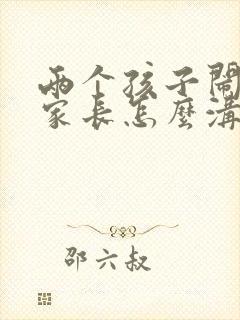 两个孩子鬧
家长怎麼溝
邵六叔